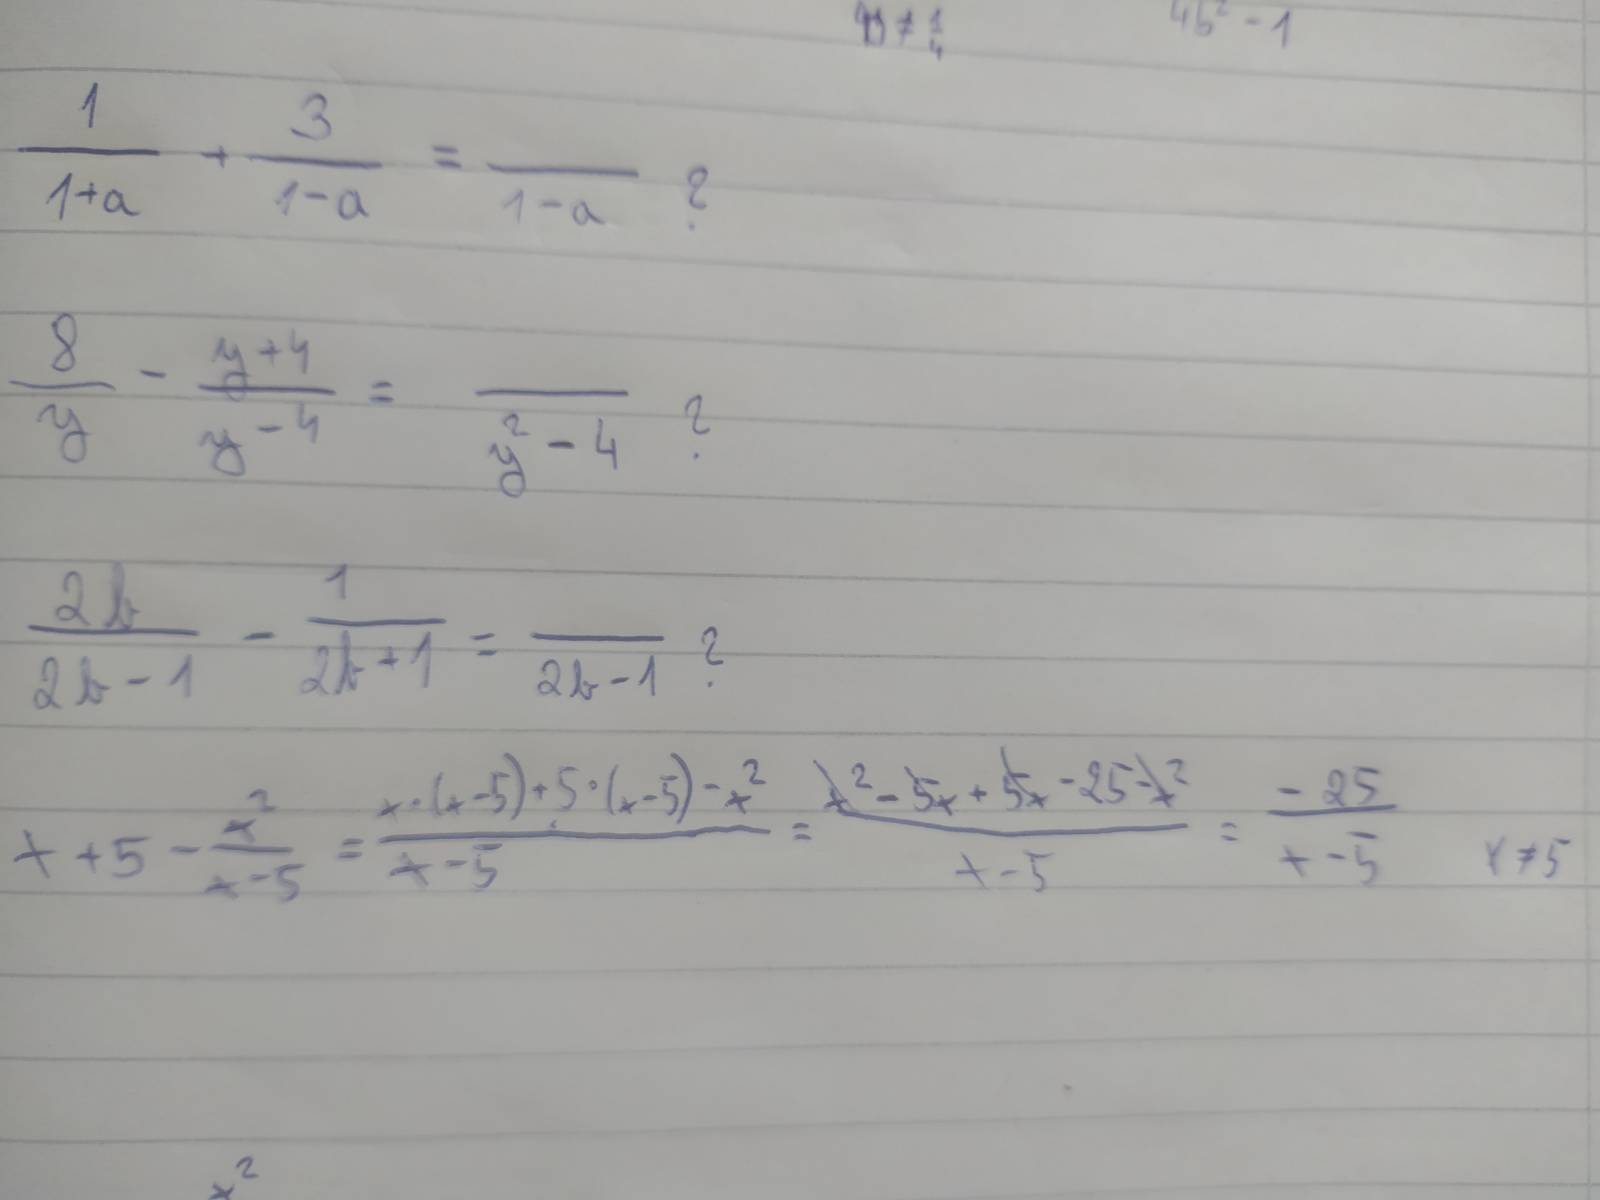 4b² - 1
1/(1+a) + 3/(1-a) = /(1-a) ?
8/y - (y+4)/(y-4) = /(y²-4) ?
2b/(2b-1) - 1/(2b+1) = /(2b-1) ?
x+5 - x²/(x-5) = (x·(x-5)+5·(x-5)-x²)/(x-5) = (x²-5x+5x-25-x²)/(x-5) = -25/(x-5) x≠5
x²